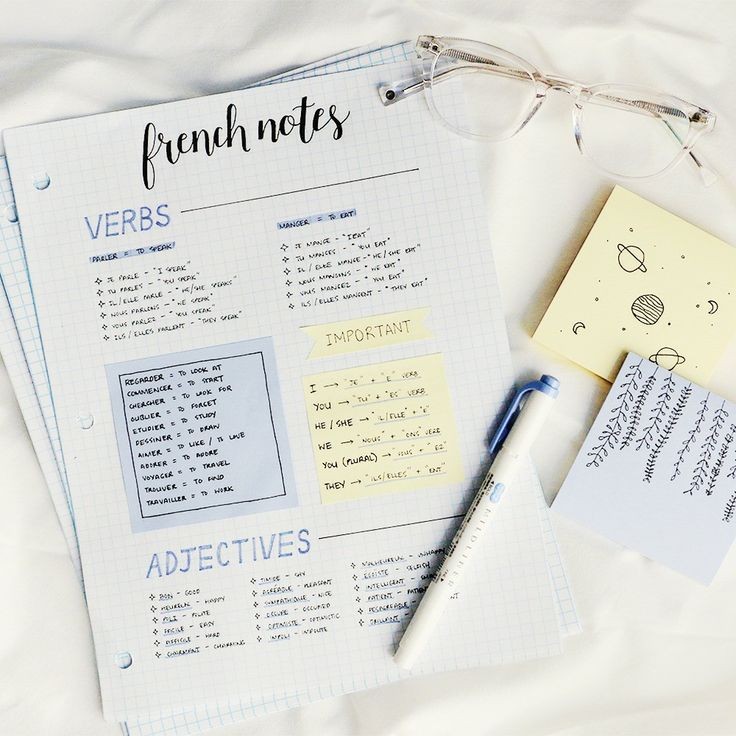 french notes
VERBS
PARLER = TO SPEAK
JE PARLE - "I SPEAK"
TU PARLES - "YOU SPEAK"
IL/ELLE PARLE - "HE/SHE SPEAKS"
NOUS PARLONS - "WE SPEAK"
VOUS PARLEZ - "YOU SPEAK"
ILS/ELLES PARLENT - "THEY SPEAK"
MANGER = TO EAT
JE MANGE - "I EAT"
TU MANGES - "YOU EAT"
IL/ELLE MANGE - "HE/SHE EAT"
NOUS MANGONS - "WE EAT"
VOUS MANGEZ - "YOU EAT"
ILS/ELLES MANGENT - "THEY EAT"
REGARDER = TO LOOK AT
COMMENCER = TO START
CHERCHER = TO LOOK FOR
OUBLIER = TO FORGET
ETUDIER = TO STUDY
DESSINER = TO DRAW
AIMER = TO LIKE / TO LOVE
ADORER = TO ADORE
VOYAGER = TO TRAVEL
TROUVER = TO FIND
TRAVAILLER = TO WORK
IMPORTANT
I → "JE" + "E" VERB
YOU → "TU" + "ES" VERB
HE/SHE → "IL/ELLE" + "E"
WE → "NOUS" + "ONS" VERB
YOU (PLURAL) → "VOUS" + "EZ"
THEY → "ILS/ELLES" + "ENT"
ADJECTIVES
BON - GOOD
HEUREUX - HAPPY
POLI - POLITE
FACILE - EASY
DIFFICILE - HARD
CHARMANT - CHARMING
TIMIDE - SHY
AGRÉABLE - PLEASANT
SYMPATHIQUE - NICE
OCCUPÉ - OCCUPIED
OPTIMISTE - OPTIMISTIC
IMPOLI - IMPOLITE
MALHEUREUX - UNHAPPY
EGOISTE - SELFISH
INTELLIGENT
PATIENT - PATIENT
DESAGREABLE
BRILLANT
MILDLINER